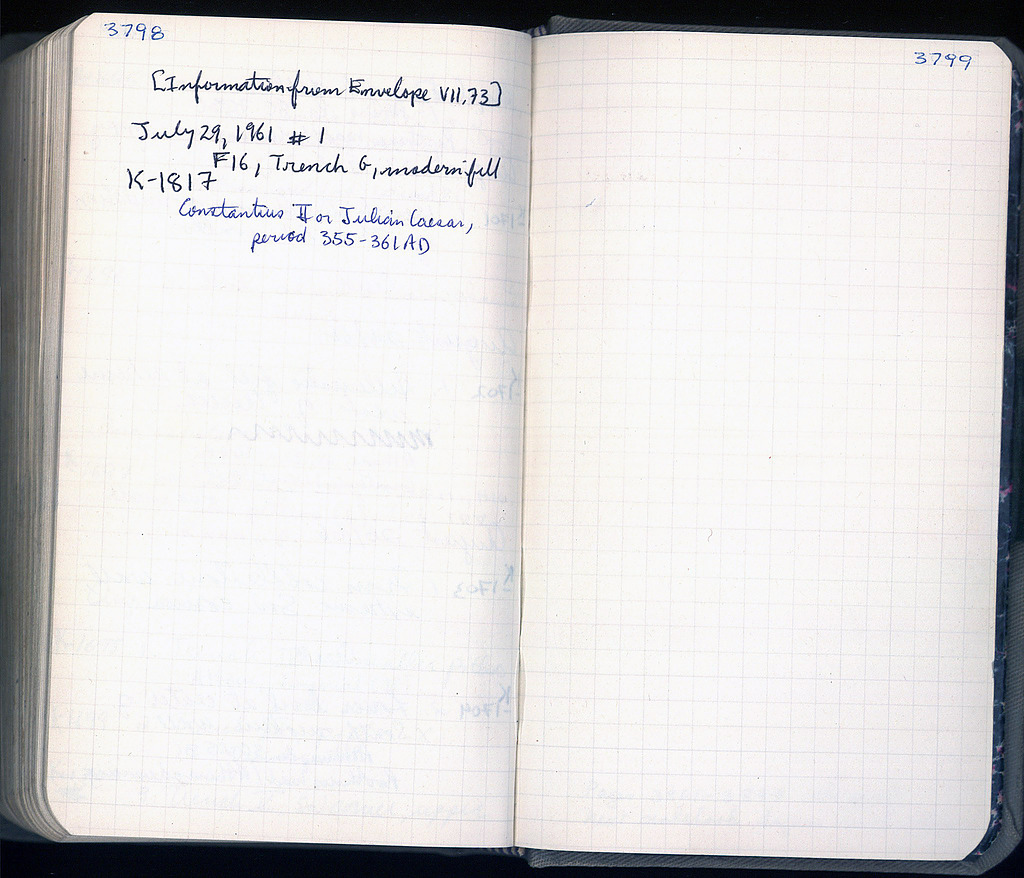 3798
[Information from Envelope VII, 73]
July 29, 1961 # 1
F16, Trench G, modern fill
K-1817
Constantius II or Julian Caesar,
period 355-361 AD
3799